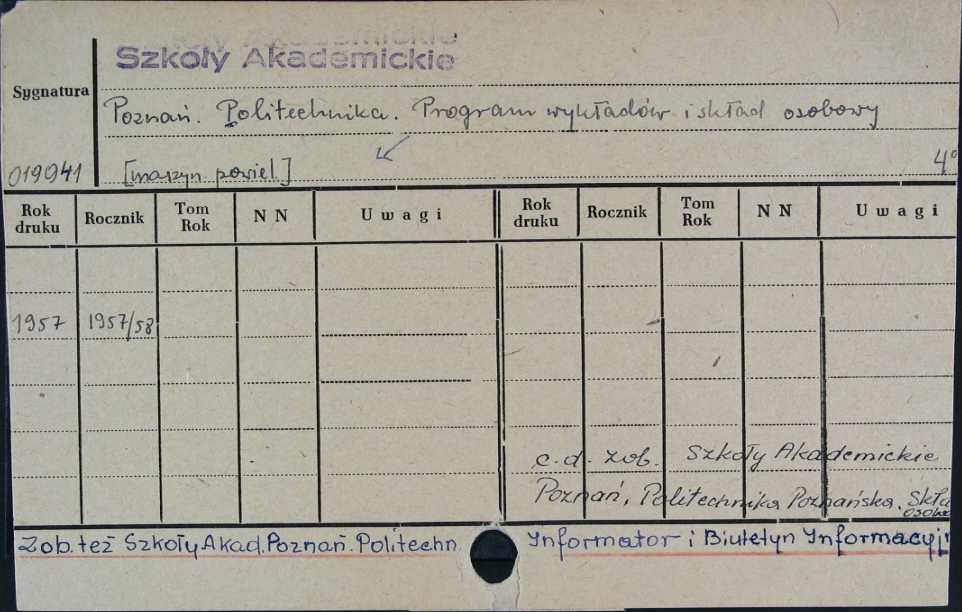 Szkoły Akademickie
Sygnatura
Poznań. Politechnika. Program wykładów i skład osobowy
019941 [maszyn powiel.] 4°
Rok druku Rocznik Tom Rok N N Uwagi Rok druku Rocznik Tom Rok N N Uwagi
1957 1957/58
c.d. zob. Szkoły Akademickie
Poznań. Politechnika Poznańska. Skła
osobo
Zob. też Szkoły Akad. Poznań. Politechn. Informator i Biuletyn Informacyj